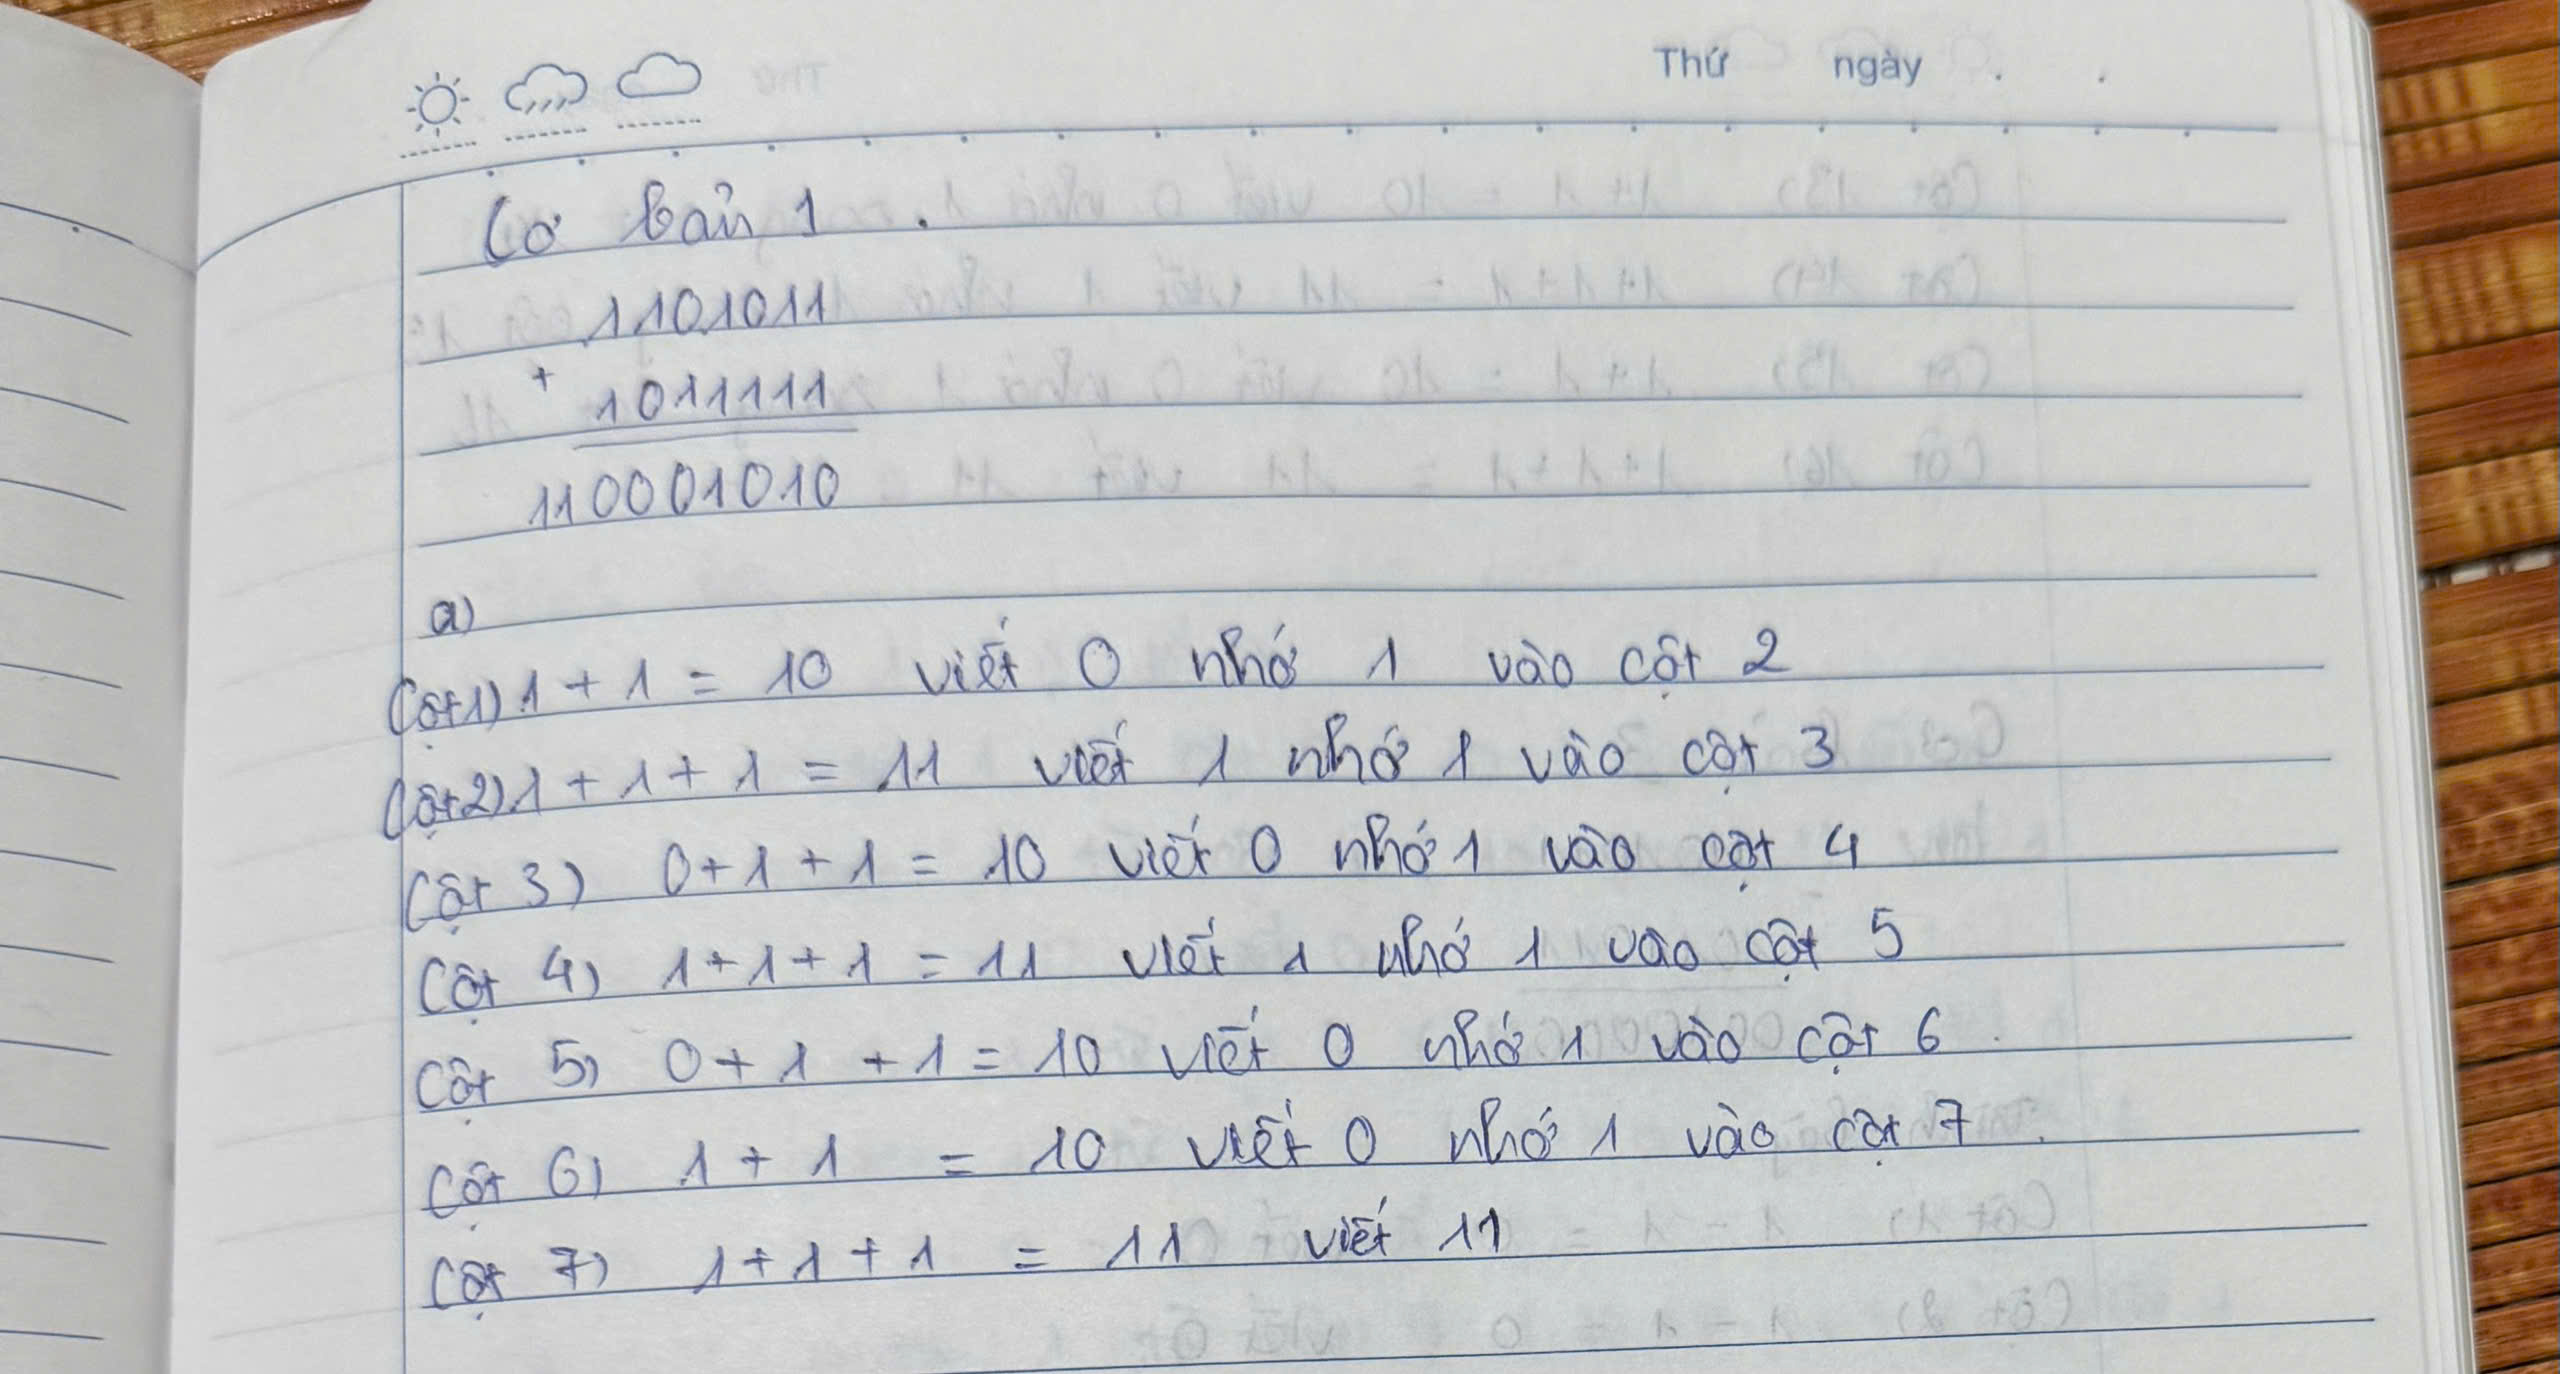 Thứ ngày . .
Cơ bản 1 .
1101011
+
1011111
110001010
a)
Cột 1) 1 + 1 = 10 viết 0 nhớ 1 vào cột 2
Cột 2) 1 + 1 + 1 = 11 viết 1 nhớ 1 vào cột 3
Cột 3) 0 + 1 + 1 = 10 viết 0 nhớ 1 vào cột 4
Cột 4) 1 + 1 + 1 = 11 viết 1 nhớ 1 vao cột 5
Cột 5) 0 + 1 + 1 = 10 viết 0 nhớ 1 vào cột 6
Cột 6) 1 + 1 = 10 viết 0 nhớ 1 vào cột 7
Cột 7) 1 + 1 + 1 = 11 viết 11